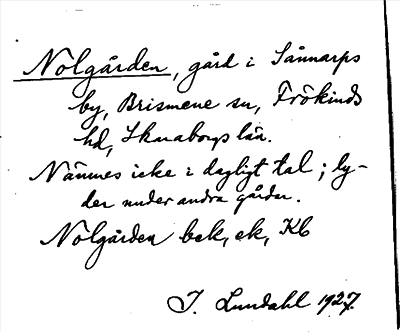 Nolgården, gård i Sännarps
by, Brismene sn, Frökinds
hd, Skaraborgs län.
Nämnes icke i dagligt tal; ly-
der under andra gårdar.
Nolgården bek, ek, Kb
J. Lundahl 1927.